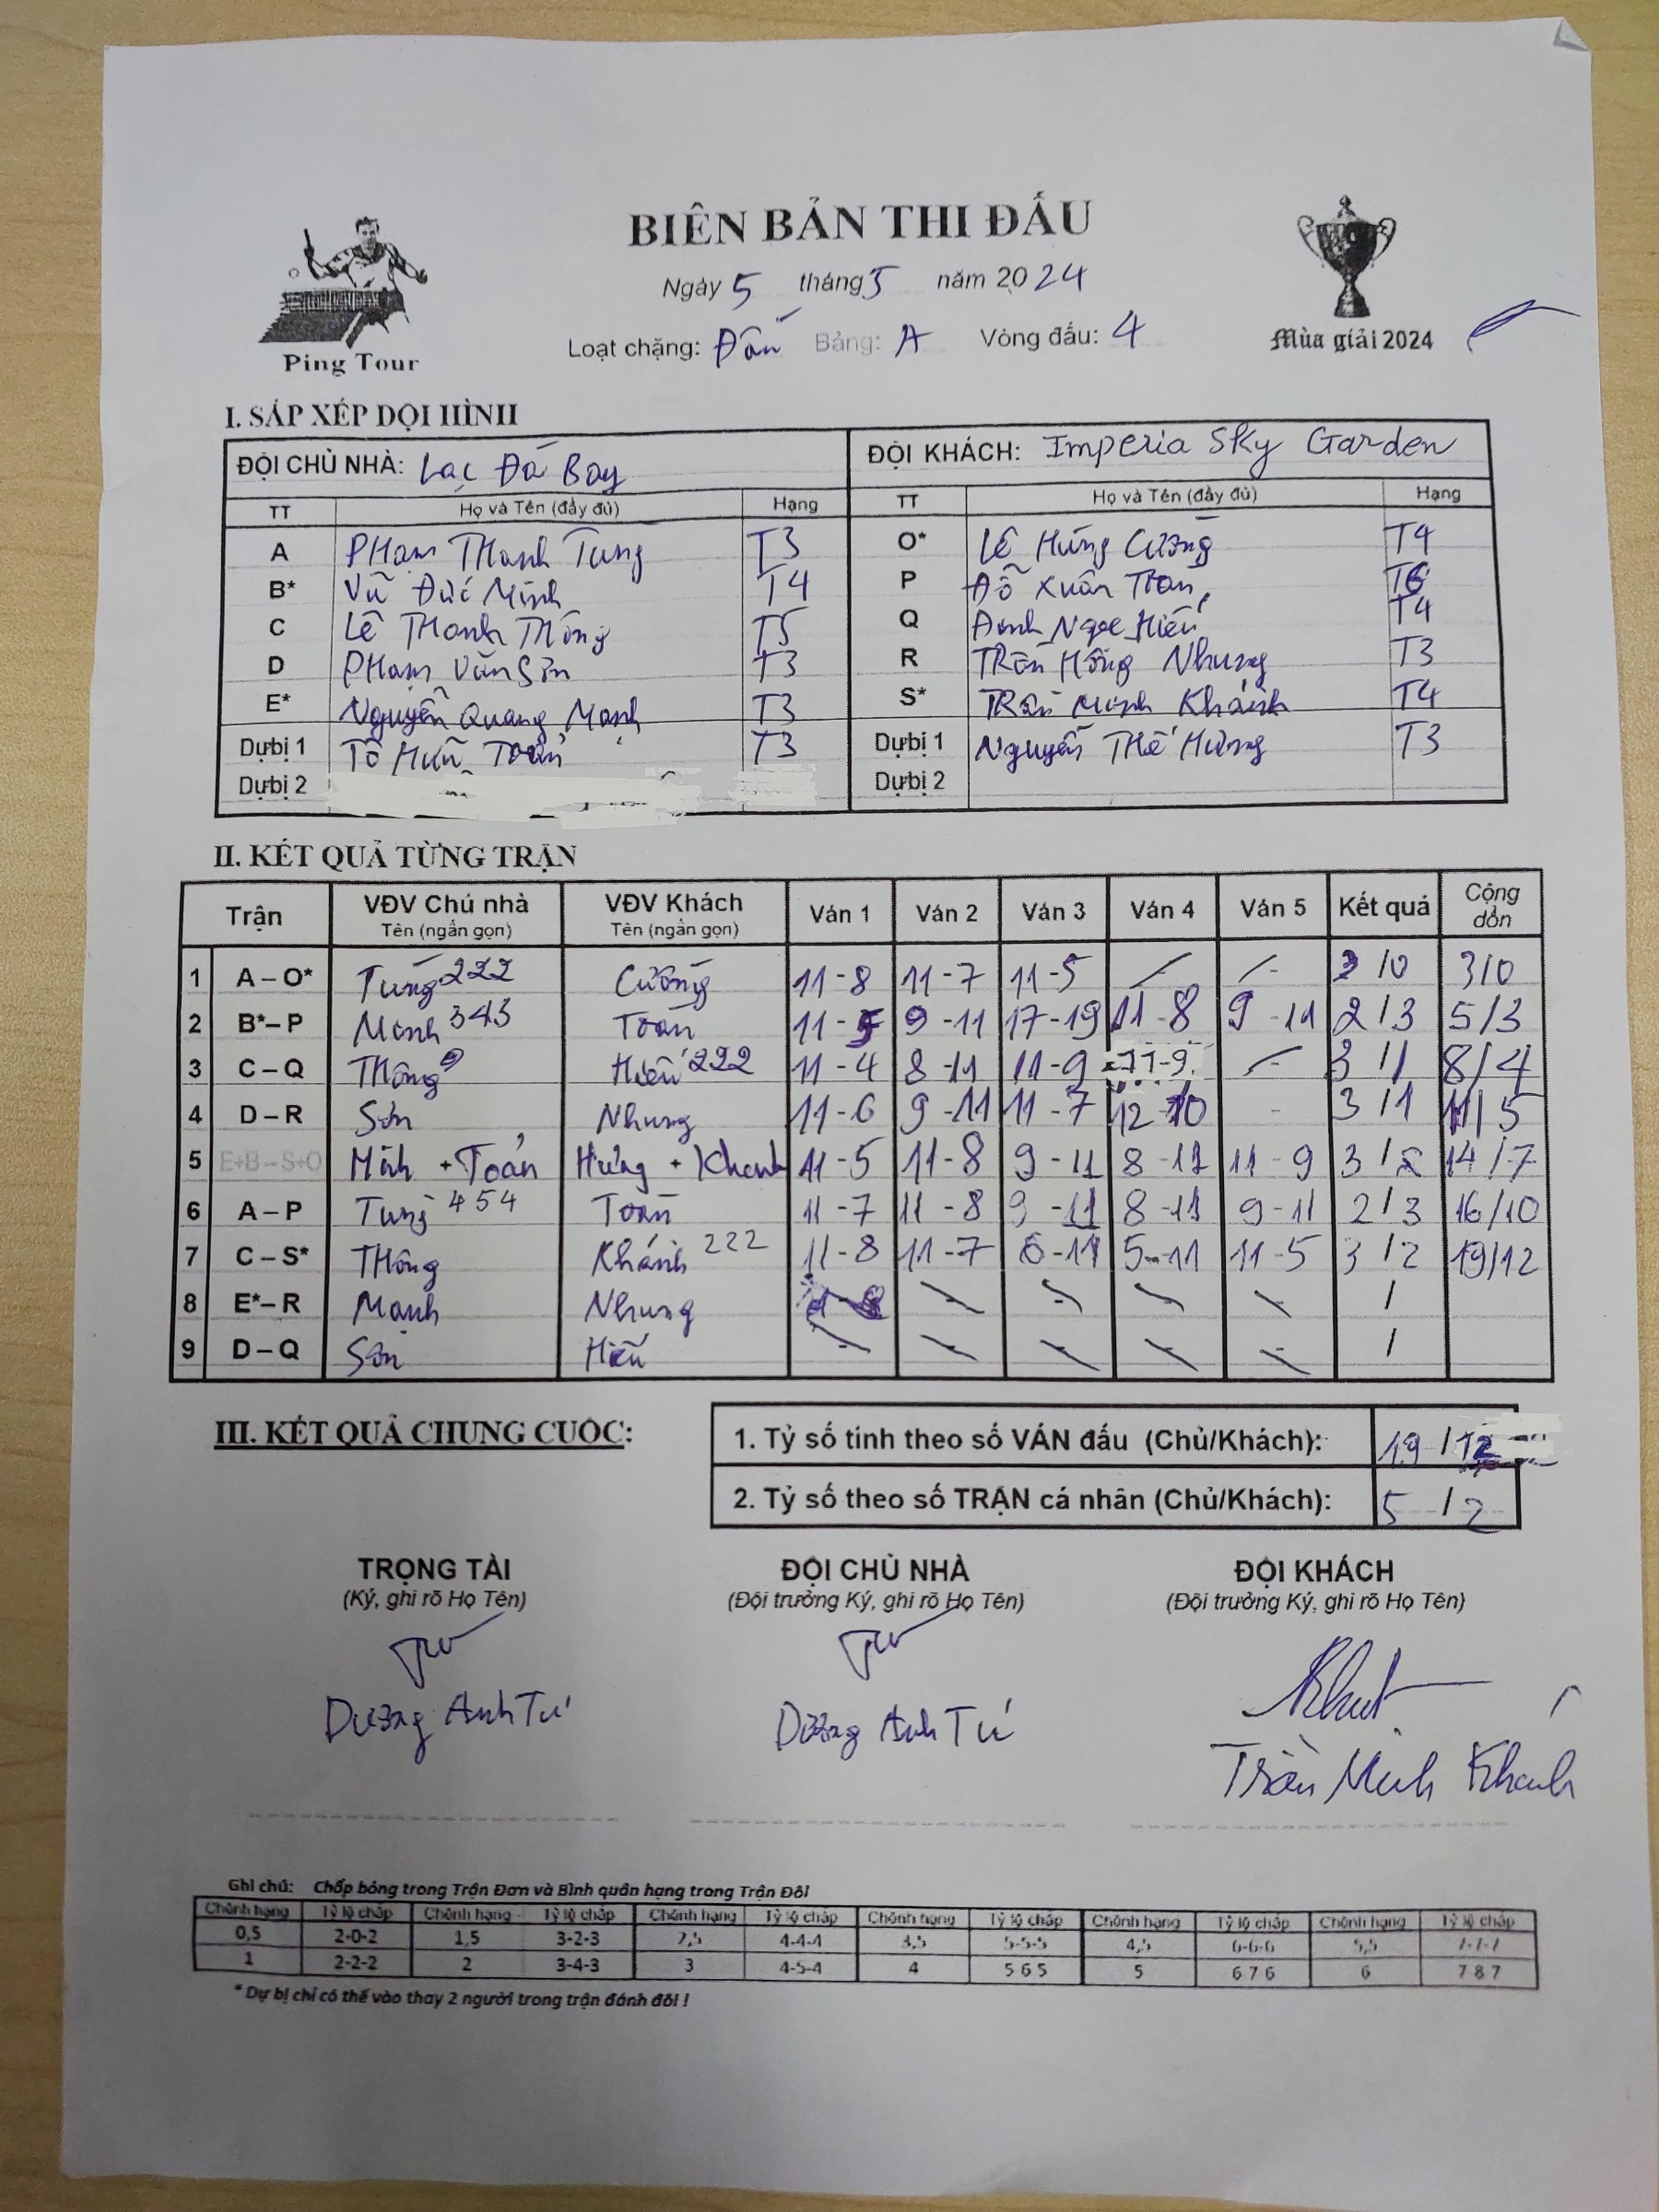 BIÊN BẢN THI ĐẤU
Ngày 5 tháng 5 năm 2024
Loạt chặng: Đấu Bảng: A Vòng đấu: 4
Ping Tour
Mùa giải 2024
I. SẮP XẾP ĐỘI HÌNH
ĐỘI CHỦ NHÀ: Lạc Đà Bay ĐỘI KHÁCH: Imperia Sky Garden
TT Họ và Tên (đầy đủ) Hạng TT Họ và Tên (đầy đủ) Hạng
A Phạm Thanh Tùng T3 O* Lê Hùng Cường T4
B* Vũ Đức Minh T4 P Đỗ Xuân Toàn T6
C Lê Thanh Thông T5 Q Đinh Ngọc Hiếu T4
D Phạm Văn Sơn T3 R Trần Hồng Nhung T3
E* Nguyễn Quang Mạnh T3 S* Trần Minh Khánh T4
Dự bị 1 Tô Hữu Toản T3 Dự bị 1 Nguyễn Thế Hưng T3
Dự bị 2 Dự bị 2
II. KẾT QUẢ TỪNG TRẬN
Trận VĐV Chủ nhà Tên (ngắn gọn) VĐV Khách Tên (ngắn gọn) Ván 1 Ván 2 Ván 3 Ván 4 Ván 5 Kết quả Cộng dồn
1 A – O* Tùng 222 Cường 11-8 11-7 11-5 - - 3/0 3/0
2 B* – P Minh 343 Toàn 11-5 9-11 17-19 11-8 9-11 2/3 5/3
3 C – Q Thông Hiếu 222 11-4 8-11 11-9 11-9 - 3/1 8/4
4 D – R Sơn Nhung 11-6 9-11 11-7 12-10 - 3/1 11/5
5 E+B – S+O Minh + Toản Hưng + Khanh 11-5 11-8 9-11 8-11 11-9 3/2 14/7
6 A – P Tùng 454 Toàn 11-7 11-8 9-11 8-11 9-11 2/3 16/10
7 C – S* Thông Khánh 222 11-8 11-7 6-11 5-11 11-5 3/2 19/12
8 E* – R Mạnh Nhung - - - - /
9 D – Q Sơn Hiếu - - - - - /
III. KẾT QUẢ CHUNG CUỘC:
1. Tỷ số tính theo số VÁN đấu (Chủ/Khách): 19/12
2. Tỷ số theo số TRẬN cá nhân (Chủ/Khách): 5/2
TRỌNG TÀI ĐỘI CHỦ NHÀ ĐỘI KHÁCH
(Ký, ghi rõ Họ Tên) (Đội trưởng Ký, ghi rõ Họ Tên) (Đội trưởng Ký, ghi rõ Họ Tên)
Dương Anh Tú Dương Anh Tú Trần Minh Khanh
Ghi chú: Chấp bóng trong Trận Đơn và Bình quân hạng trong Trận Đôi
Chênh hạng Tỷ lệ chấp Chênh hạng Tỷ lệ chấp Chênh hạng Tỷ lệ chấp Chênh hạng Tỷ lệ chấp Chênh hạng Tỷ lệ chấp Chênh hạng Tỷ lệ chấp
0,5 2-0-2 1,5 3-2-3 2,5 4-4-4 3,5 5-5-5 4,5 6-6-6 5,5 7-7-7
1 2-2-2 2 3-4-3 3 4-5-4 4 5 6 5 5 6 7 6 6 7 8 7
* Dự bị chỉ có thể vào thay 2 người trong trận đánh đôi !